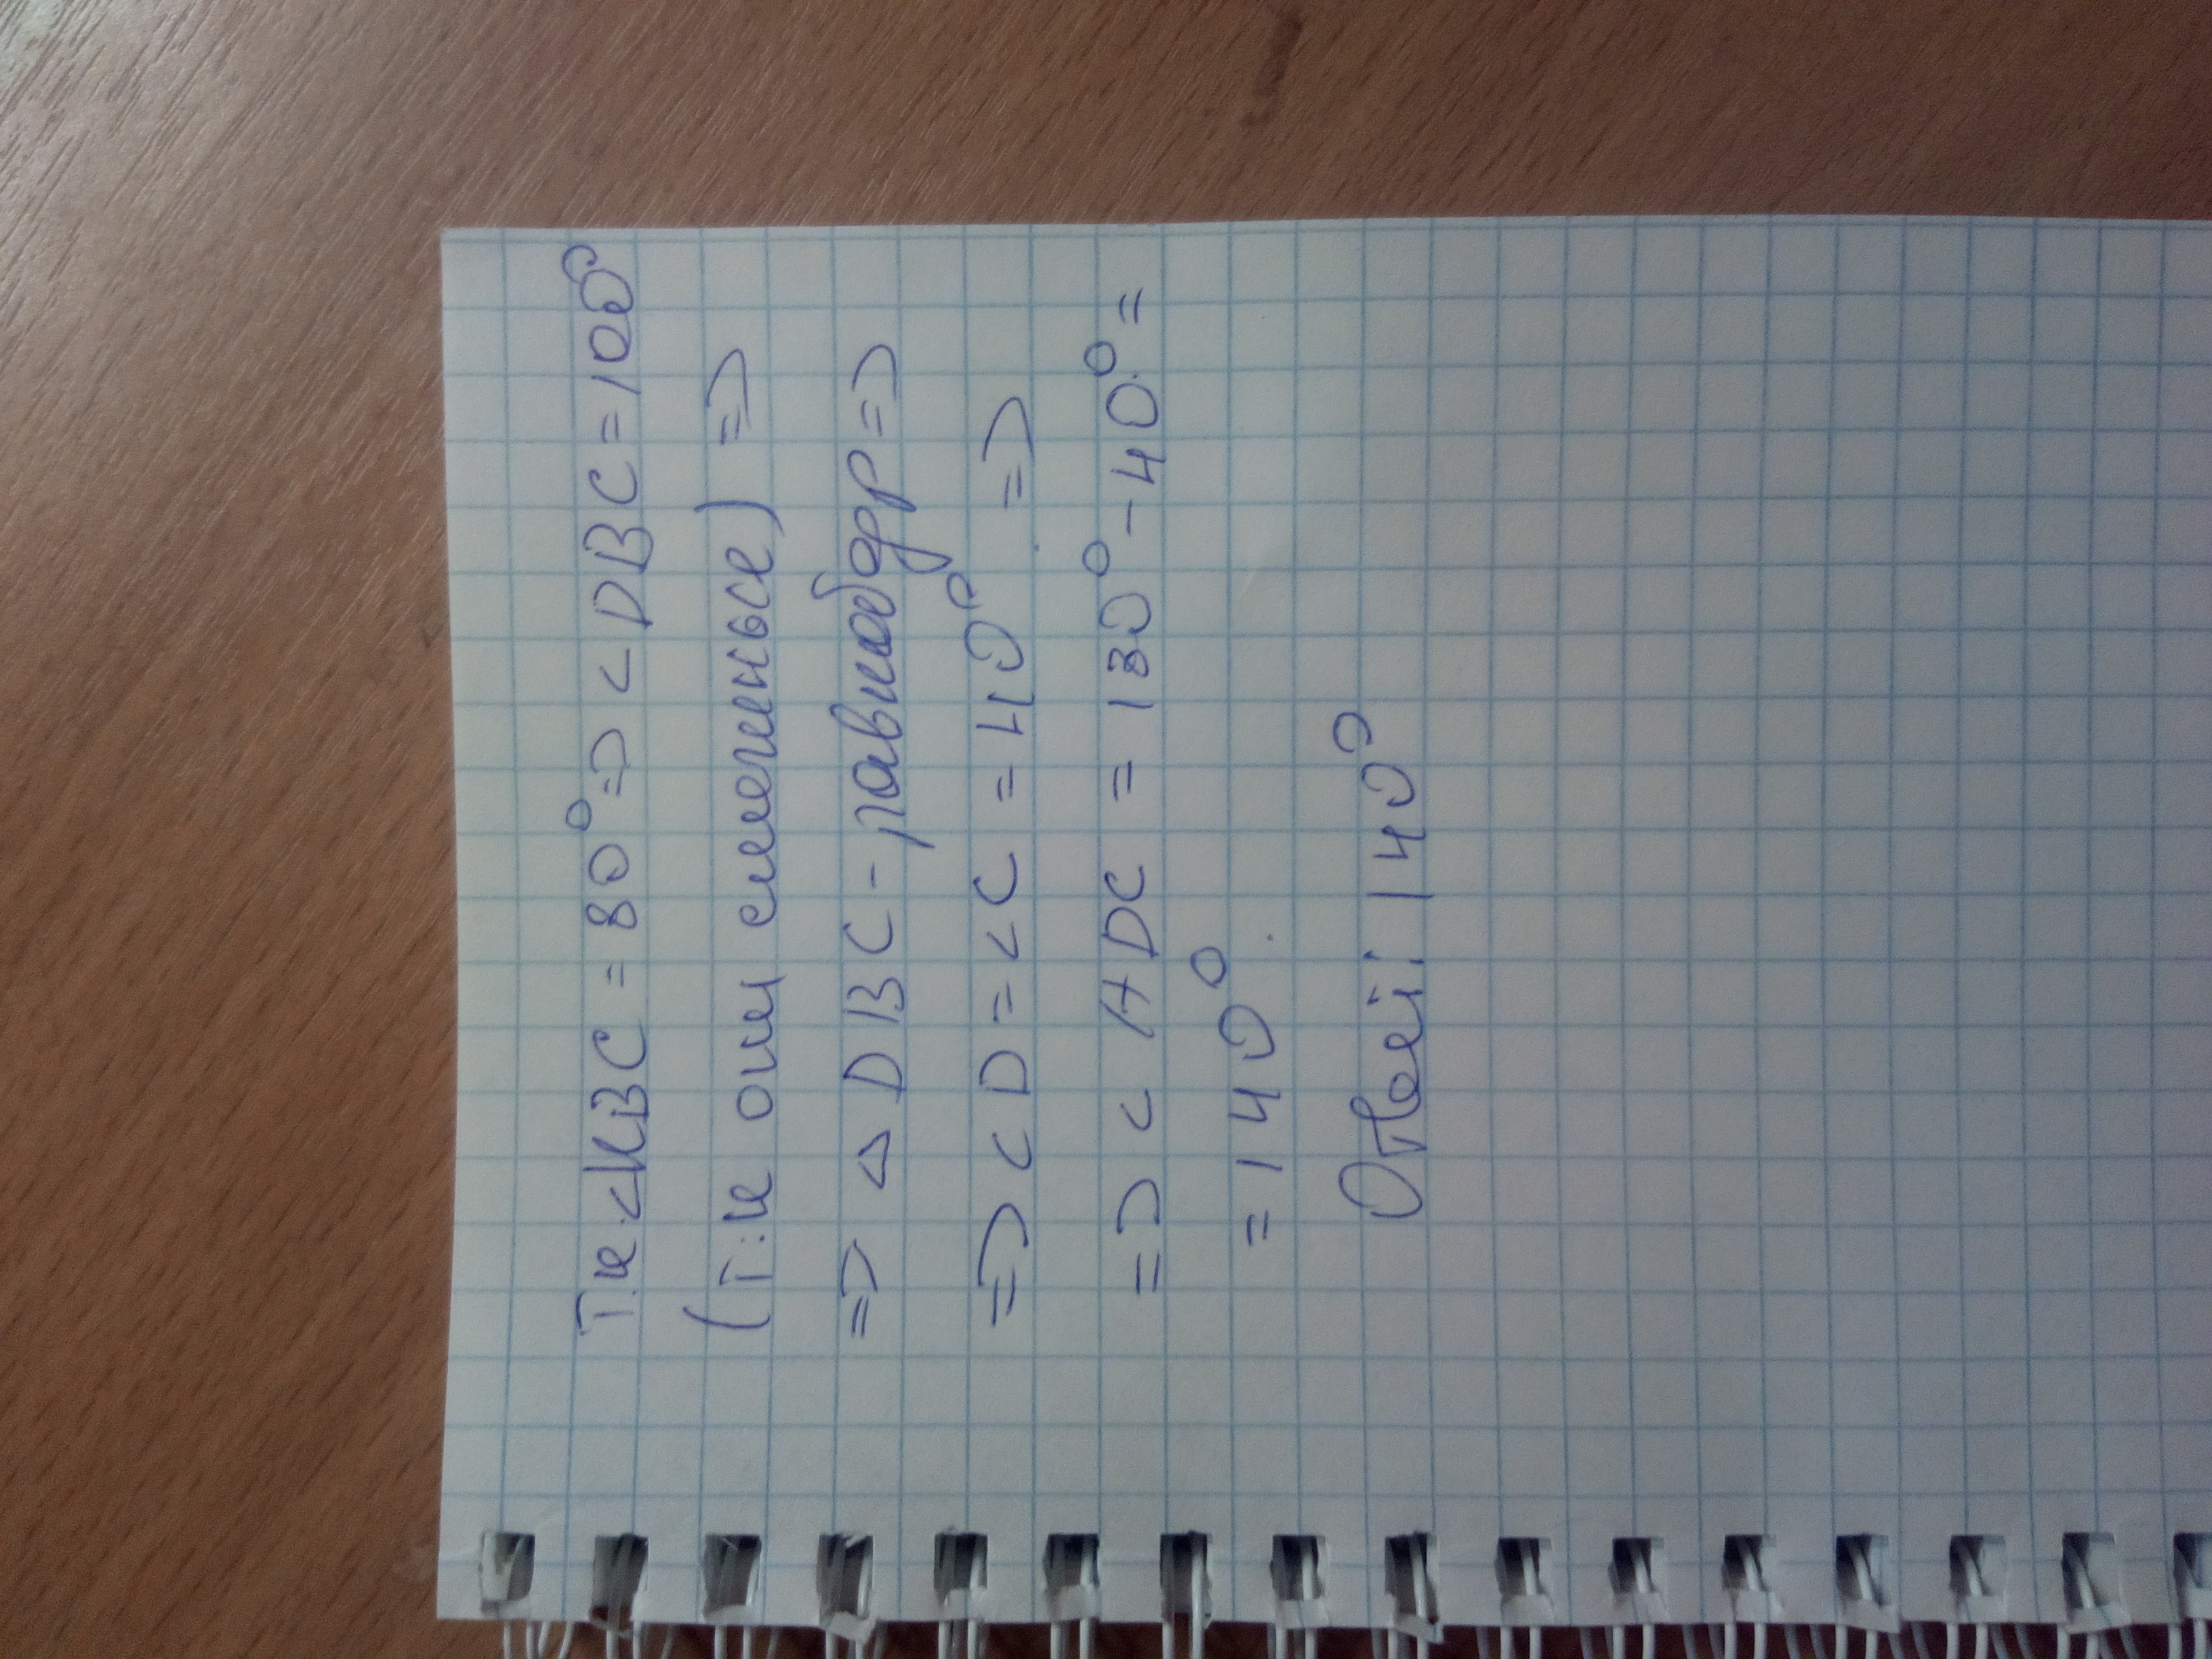 Т.к <KBC = 80° => < DBC = 100°
(т.к они смежные) =>
=> △ DBC - равнобедр =>
=> < D = < C = 40° =>
=> < ADC = 180° - 40° =
= 140°
Ответ: 140°